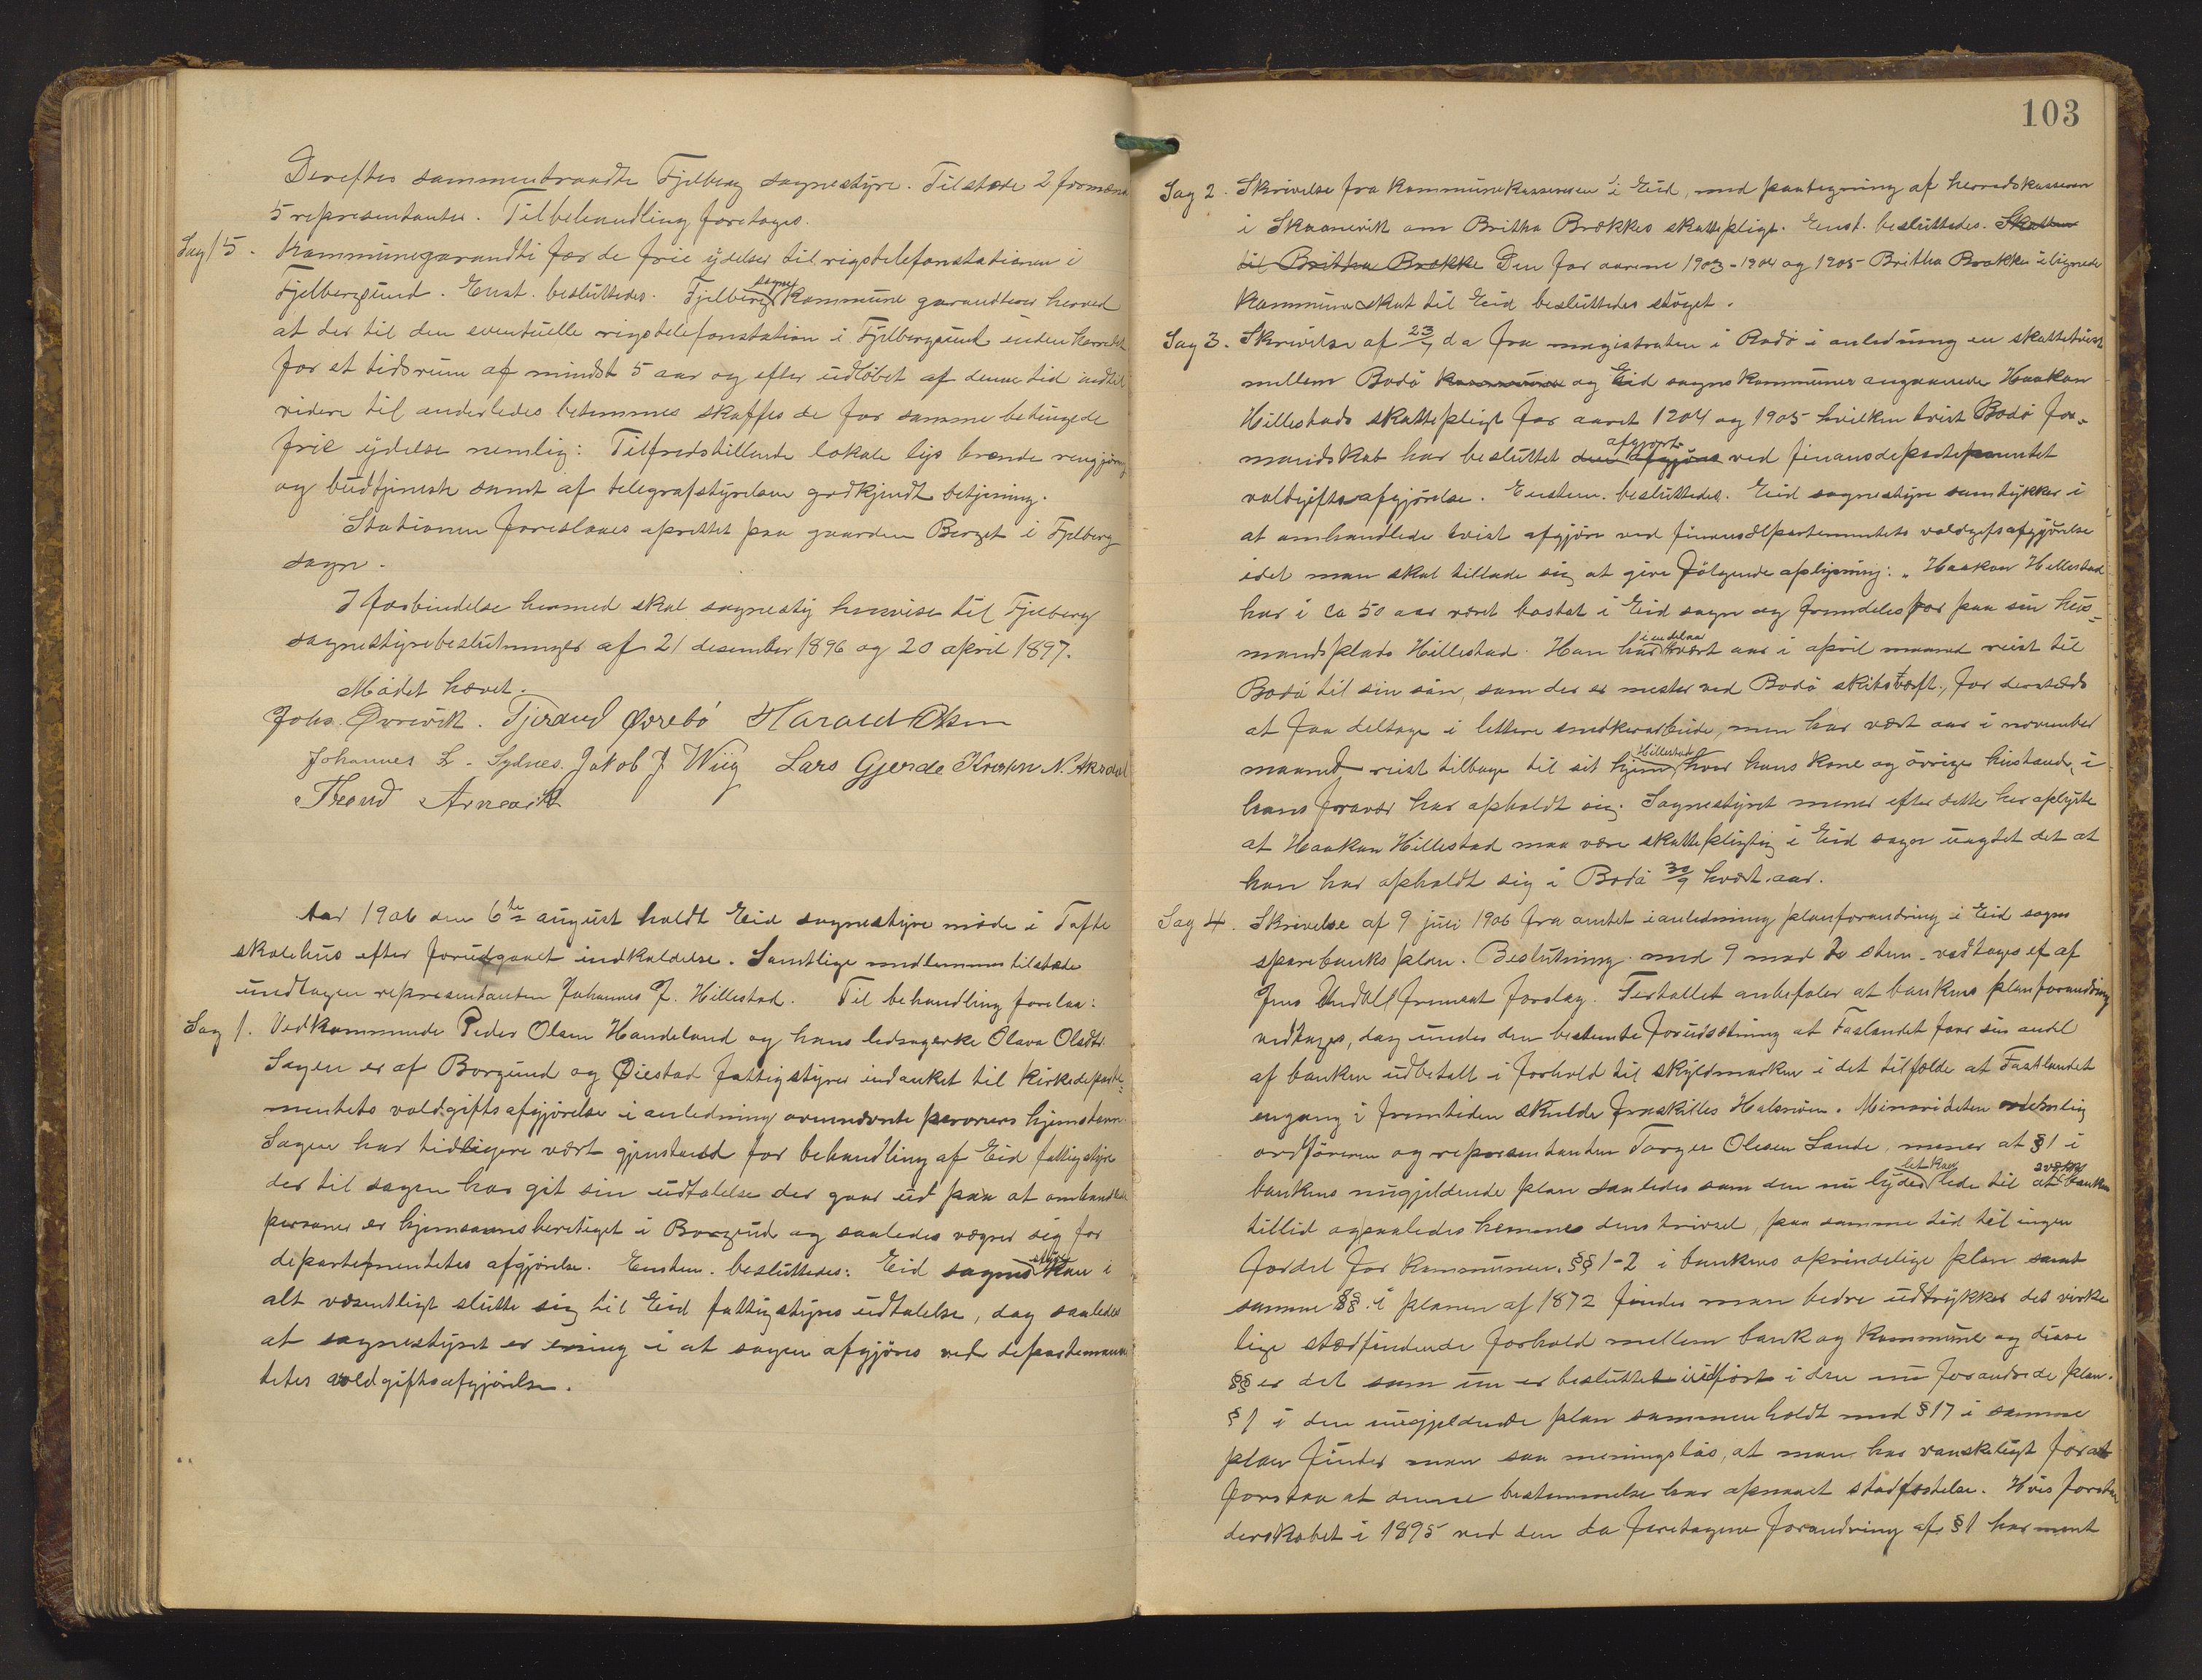 Derefter sammentraadte Fjelberg sognestyre. Tilstede 2 formænd
5 repræsentanter. Til behandling foretages.
Sag 15. Kommunegarandti for de frie ydelser til rigstelefonstationen i
Fjelbergsund. Enst. besluttedes. Fjelberg sogne kommune garandterer herved
at der til den eventuelle rigstelefonstation i Fjelbergsund inden herredet
for et tidsrum af mindst 5 aar og efter udløbet af denne tid indtil
videre til anderledes bestemmes skaffes de for samme betingede
frie ydelse nemlig: Tilfredstillende lokale lys brænde rengjøring
og budtjeneste samt af telegrafstyrelsen godkjendt betjening.
Stationen foreslaaes oprettet paa gaarden Berget i Fjelberg
sogn.
I forbindelse hermed skal sognesty henvise til Fjelberg
sognestyrebeslutninger af 21 desember 1896 og 20 april 1897.
Mødet hævet.
Johs. Øvrevik. Tjerand Øvrebø Harald Olsen
Johannes L. Sydnes. Jakob J Wiig Lars Gjerde N. Akrdal
Trond Arnevik
Aar 1906 den 6te august holdt Eid sognestyre møde i Tofte
skolehus efter forudgaaet indkaldelse. Samtlige medlemmer tilstede
undtagen repræsentanten Johannes J. Hillestad. Til behandling forelaa:
Sag 1. Vedkommende Peder Olsen Handeland og hans ledsagerke Olava Olsdtr.
Sagen er af Borgund og Øiestad fattigstyrer indanket til kirkedeparte-
mentets voldgiftsafgjørelse i anledning ovennævnte personers hjemstavn.
Sagen har tidligere vært gjenstand for behandling af Eid fattigstyre
der til sagen har git sin udtalelse der gaar ud paa at omhandlede
personer er hjemstavnsberetiget i Borgund og saaledes vægrer sig for
departementets afgjørelse. Enstem. besluttedes: Eid sogne styre kan i
alt væsentligt slutte sig til Eid fattigstyres udtalelse, dog saaledes
at sognestyret er ening i at sagen afgjøres ved departemen
tets voldgiftsafgjørelse.
103
Sag 2. Skrivelse fra kommunekassereren i Eid, med paategning af herredskasserer
i Skaanevik om Britha Brækkes skattepligt. Enst. besluttedes. Skatten
til Britha Brække Den for aarene 1903-1904 og 1905 Britha Brække ilignede
kommuneskat til Eid besluttedes støget.
Sag 3. Skrivelse af 23/7 da fra magistraten i Bodø i anledning en skattetvist
mellem Bodø kommune og Eid sognskommuner angaaende Haakon
Hillestads skattepligt for aaret 1904 og 1905 hvilken tvist Bodø for-
mandskab har besluttet den afgjøres afgjort ved finansdepartementet
voldgiftsafgjørelse. Enstem. besluttedes. Eid sognestyre samtykker i
at omhandlede tvist afgjøres ved finansdepartementets voldgiftsafgjørelse
idet man skal tillade sig at give følgende oplysning: "Haakon Hillestad
har i ca 50 aar været bosat i Eid sogn og fremdeles bor paa sin hus-
mandsplads Hillestad. Han har indelaar hvert aar i april maaned reist til
Bodø til sin søn, som der er mester ved Bodø skibsværft, for dersteds
at faa deltage i lettere snedkerarbeide, men har vært aar i november
maaned reist tilbage til sit hjem Hillestad hvor hans kone og øvrige hustand i
hans fravær har opholdt sig. Sognestyret mener efter dette her oplyste
at Haakon Hillestad maa være skattepligtig i Eid sogn uagtet det at
han har opholdt sig i Bodø 30/9 hvert aar.
Sag 4. Skrivelse af 9 juli 1906 fra amtet i anledning planforandring i Eid sogns
sparebanks plan. Beslutning med 9 mod 2 stem. vedtages et af
Jens Undall fremsat forslag. Flertallet anbefaler at bankens planforandring
vedtages, dog under den bestemte forudsætning at Fastlandet faar sin andel
af banken udbetalt i forhold til skyldmarken i det tilfælde at Fastlandet
engang i fremtiden skulde fraskilles Halsnøen. Minoriteten nemlig
ordføreren og repræsentanten Torger Olesen Sande, mener at § 1 i
bankens nugjeldende plan saaledes som den nu lyder let kan lede til at svække bankens
tillid og saaledes hemme dens trivsel, paa samme tid til ingen
fordel for kommunen. §§ 1-2 i bankens oprindelige plan samt
samme §§ i planen af 1872 findes man bedre udtrykker det virke
lige stedfindende forhold mellem bank og kommune og disse
§§ er det som nu er besluttet indført i den nu forandrede plan.
§ 1 i den nugjeldende plan sammenholdt med § 17 i samme
plan finder man saa meningsløs, at man har vanskeligt forat
forstaa at denne bestemmelse har opnaaet stadfæstelse. Hvis forstan
derskabet i 1895 ved den da foretagene forandring af § 1 har ment